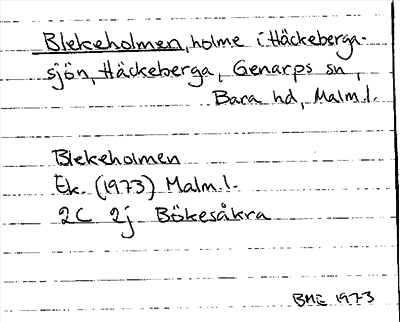 Blekeholmen, holme i Häckeberga-
sjön, Häckeberga, Genarps sn,
Bara hd, Malm.l.
Blekeholmen
Ek. (1973) Malm.l.
2C 2j Bökesåkra
BME 1973